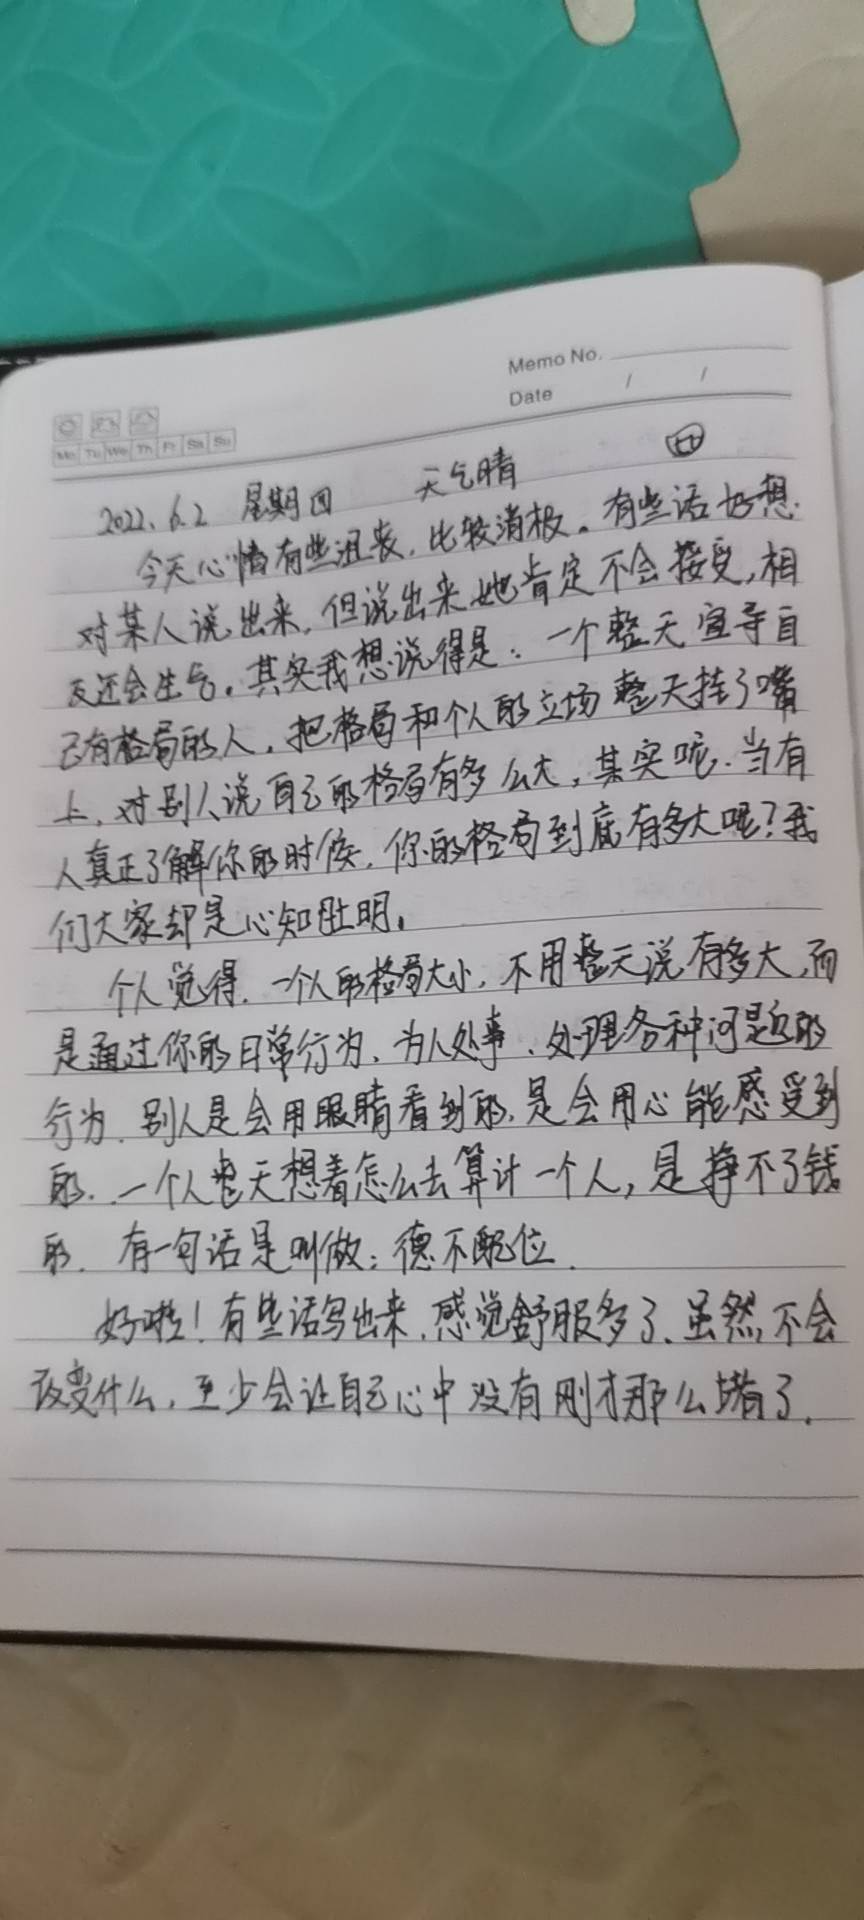 Memo No.
Date / /
Mo Tu We Th Fr Sa Su
㊃
2022.6.2 星期四 天气晴
今天心情有些沮丧,比较消极。有些话好想
对某人说出来,但说出来她肯定不会接受,相
反还会生气。其实我想说得是:一个整天宣导自
己有格局的人,把格局和个人的立场整天挂了嘴
上,对别人说自己的格局有多么大,其实呢.当有
人真正了解你的时候,你的格局到底有多大呢?我
们大家却是心知肚明。
个人觉得.一个人的格局大小,不用整天说有多大,而
是通过你的日常行为、为人处事、处理各种问题的
行为.别人是会用眼睛看到的,是会用心能感受到
的..一个人整天想着怎么去算计一个人,是挣不了钱
的.有一句话是叫做:德不配位.
好啦!有些话写出来,感觉舒服多了.虽然不会
改变什么,至少会让自己心中没有刚才那么堵了.